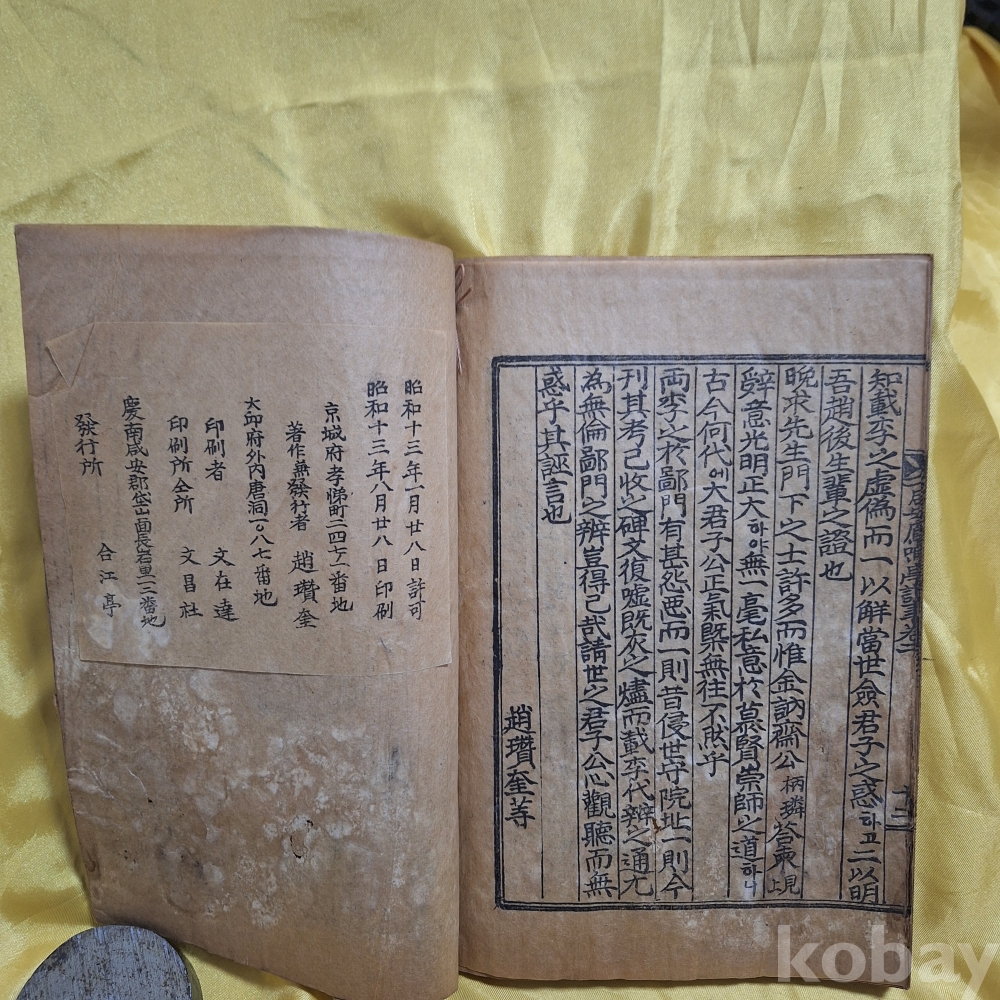 知載李之虛僞而一以解當世僉君子之惑하고二以明
吾趙後生輩之證也
晩求先生門下之士許多而惟金訥齋公柄璘答柬見上
辭意光明正大하야無一毫私意於慕賢崇師之道하니
古今何代에大君子公正氣槩無往不然乎
兩李之於鄙門有甚怨惡而一則昔侵世守院址一則今
刊其考已收之碑文復噓旣灰之燼而載李代辨之通尤
為無倫鄙門之辨豈得已哉請世之君子公心觀聽而無
惑乎其誣言也
趙瓚奎等
十二
昭和十三年一月廿八日許可
昭和十三年八月廿八日印刷
京城府孝悌町二四七ノ一番地
著作兼發行者 趙瓚奎
大邱府外內唐洞一〇八七番地
印刷者 文在達
印刷所仝所 文昌社
慶南咸安郡岱山面長岩里一二番地
發行所 合江亭
kobay